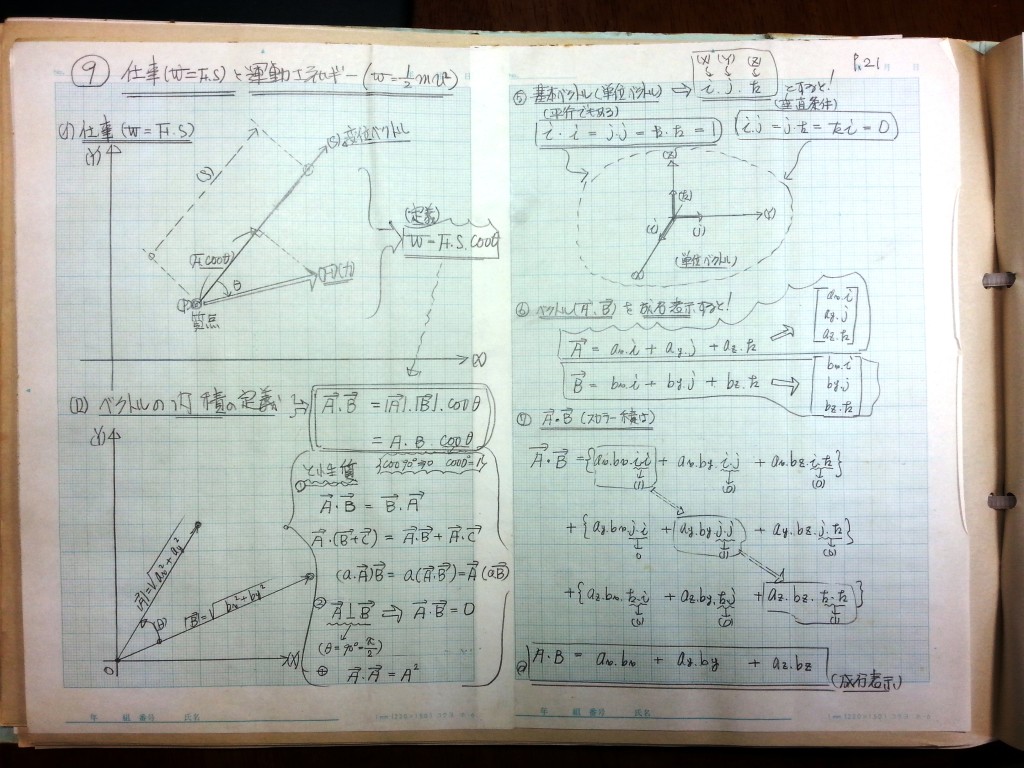 ⑨ 仕事(W=F.S)と運動エネルギー(W=½mv²)
(1) 仕事(W=F.S)
(Y)
(S)変位ベクトル
(S)
(F.cosθ)
θ
(力)
質点
(X)
(定義)
W=F.S.cosθ
(12) ベクトルの内積の定義
A・B = |A|.|B|.cosθ
= A.B.cosθ
(Y)
|A|=√ax²+ay²
(θ)
|B|=√bx²+by²
0
(X)
{cos90°⇒0 cos0°=1}
①
A・B = B・A
A・(B+C) = A・B+A・C
(a.A)B = a(A・B)=A(aB)
②
A⊥B ⇒ A・B=0
(θ=90°=π/2)
⊕ A・A=A²
年 組 番号 氏名
P.21
(X) (Y) (Z)
⑤ 基本ベクトル(単位ベクトル) ⇒ i . j . k とすると!
(平行である) (垂直条件)
i・i = j.j = k.k = 1
i.j = j.k = k.i = 0
(Z)
(k)
(Y)
(i) (j)
(X)
(単位ベクトル)
⑥ ベクトル(A.B)を成分表示すると!
A = ax.i + ay.j + az.k ⇒ [ax.i ay.j az.k]
B = bx.i + by.j + bz.k ⇒ [bx.i by.j bz.k]
⑦ A・B (スカラー積は)
A・B = {ax.bx.i.i + ax.by.i.j + ax.bz.i.k}
(1) (0) (0)
+ {ay.bx.j.i + ay.by.j.j + ay.bz.j.k}
0 (1) (0)
+ {az.bx.k.i + az.by.k.j + az.bz.k.k}
(0) (0) (1)
A・B = ax.bx + ay.by + az.bz
(成分表示)
年 組 番号 氏名